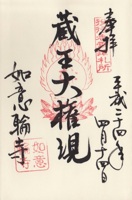 奉拝
平成二十四年
四月十四日
蔵王大権現
如意輪寺